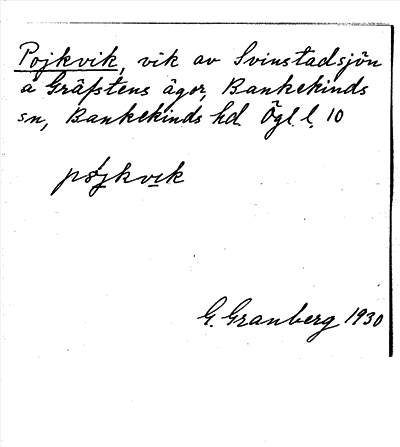 Pojkvik, vik av Svinstadsjön
a Gräfstens ägor, Bankekinds
sn, Bankekinds hd. Ögl. l. 10
pójkvik
G. Granberg 1930